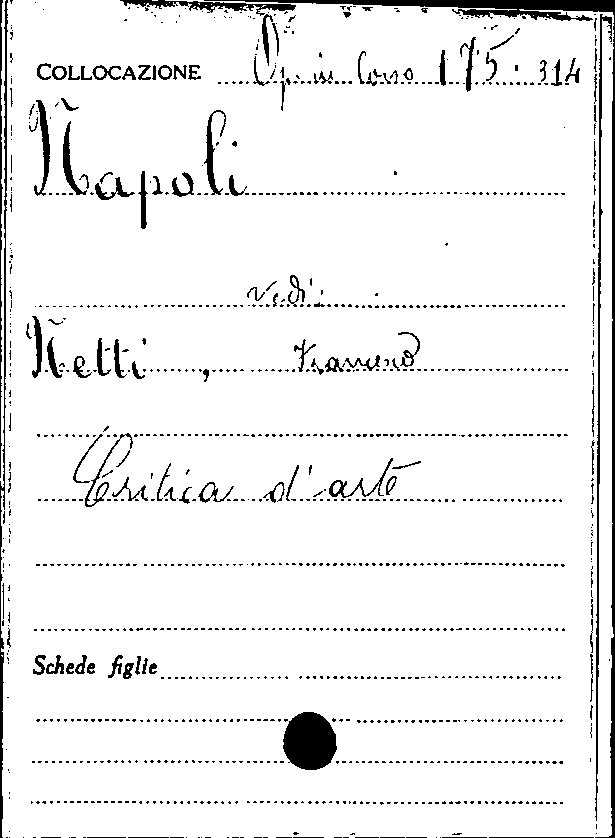 COLLOCAZIONE Op. in Corso 175. 314
Napoli
vedi:
Netti, Francesco
Critica d'arte
Schede figlie